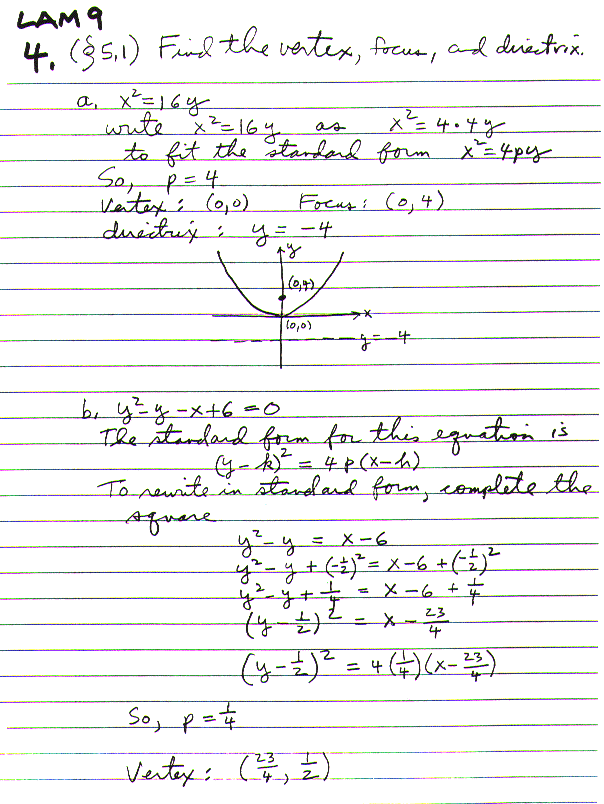 LAM 9
4. (§5.1) Find the vertex, focus, and directrix.
a. x²=16y
write x²=16y as x²=4·4y
to fit the standard form x²=4py
So, p=4
Vertex: (0,0) Focus: (0,4)
directrix: y = -4
y
(0,4)
x
(0,0)
y = -4
b. y²-y-x+6=0
The standard form for this equation is
(y-k)² = 4p(x-h)
To rewrite in standard form, complete the
square
y²-y = x-6
y²-y+(-1/2)² = x-6+(-1/2)²
y²-y+1/4 = x-6+1/4
(y-1/2)² = x-23/4
(y-1/2)² = 4(1/4)(x-23/4)
So, p=1/4
Vertex: (23/4, 1/2)